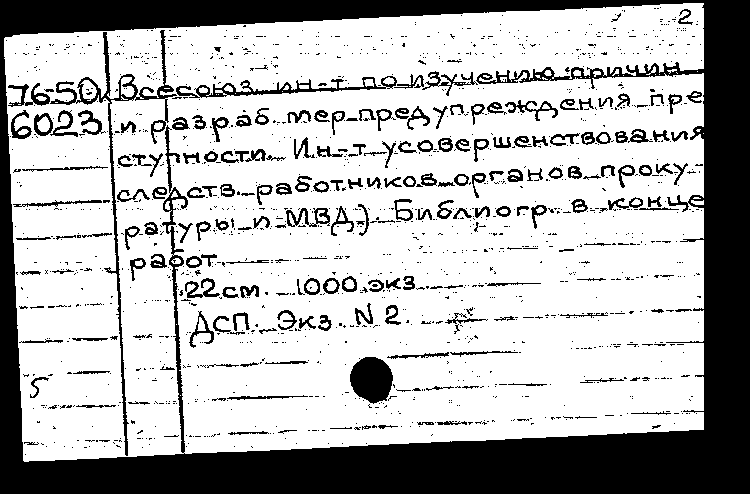 2
76-50к Всесоюз. ин-т по изучению причин
6023 и разраб. мер предупреждения пре
ступности. Ин-т усовершенствования
следств. работников органов проку-
ратуры и МВД.) Библиогр. в конце
работ
22 см. 1000 экз
ДСП. Экз. N 2.
5